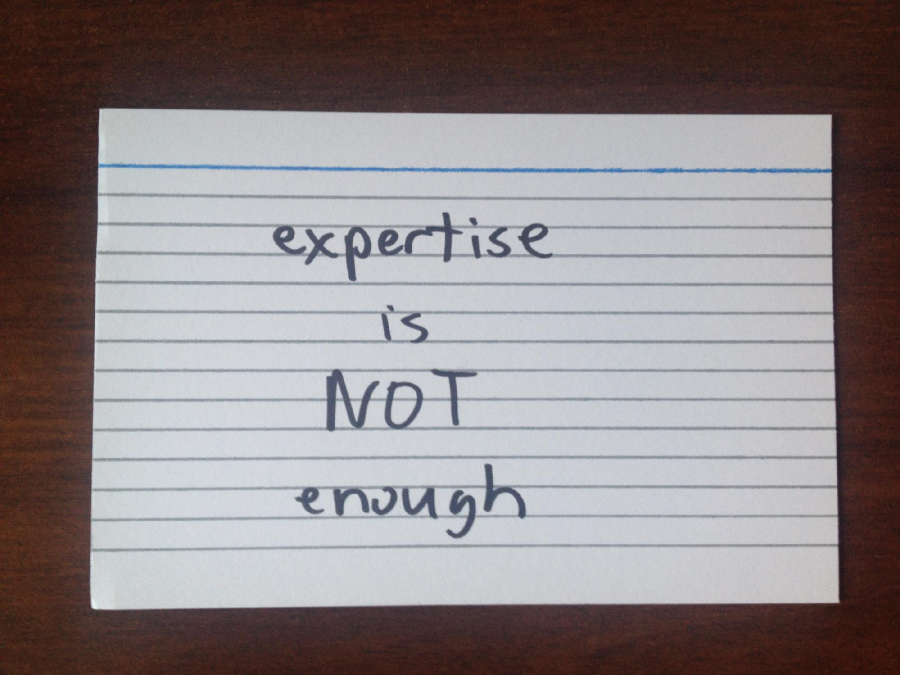 expertise
is
NOT
enough